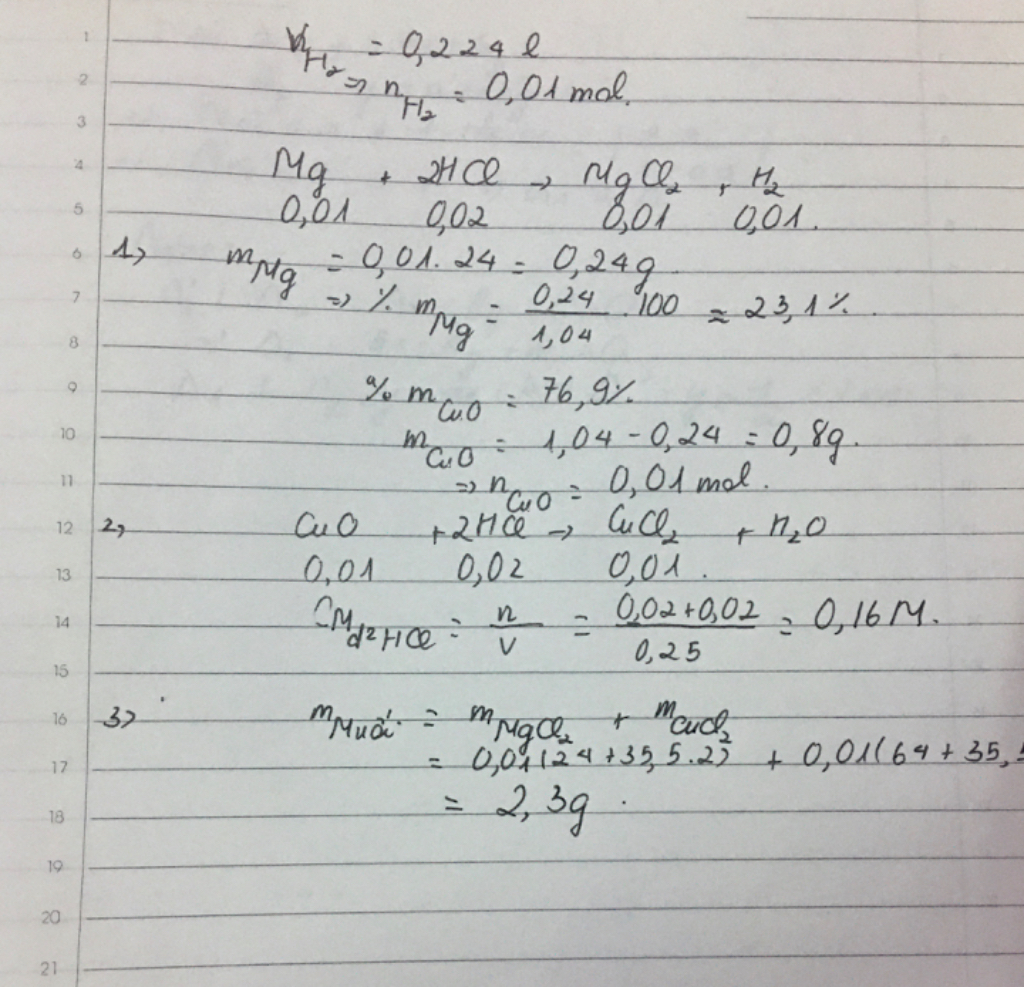 1
V_H₂ = 0,224 l
2
=> n_H₂ = 0,01 mol.
3
4
Mg + 2HCl → MgCl₂ + H₂
5
0,01 0,02 0,01 0,01.
6
1, m_Mg = 0,01. 24 = 0,24g
7
=> % m_Mg = 0,24/1,04 .100 ≈ 23,1%.
8
9
% m_CuO = 76,9%.
10
m_CuO = 1,04 - 0,24 = 0,8g.
11
=> n_CuO = 0,01 mol.
12
2, CuO + 2HCl → CuCl₂ + H₂O
13
0,01 0,02 0,01.
14
CM_d² HCl = n/V = 0,02+0,02/0,25 = 0,16M.
15
16
3, m_Muối = m_MgCl₂ + m_CuCl₂
17
= 0,01(24+35,5.2) + 0,01(64+35,
18
= 2,3g.
19
20
21